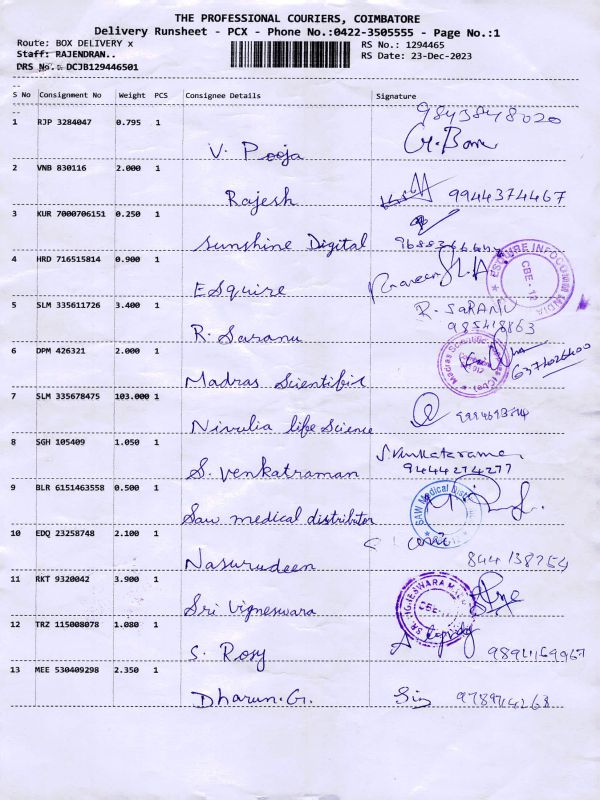 THE PROFESSIONAL COURIERS, COIMBATORE
Delivery Runsheet - PCX - Phone No.:0422-3505555 - Page No.:1
Route: BOX DELIVERY x RS No.: 1294465
Staff: RAJENDRAN.. RS Date: 23-Dec-2023
DRS No.: DCJB129446501
S No Consignment No Weight PCS Consignee Details Signature
1 RJP 3284047 0.795 1 9843848020
V. Pooja
2 VNB 830116 2.000 1
Rajesh 9944374467
3 KUR 7000706151 0.250 1
Sunshine Digital
4 HRD 716515814 0.900 1
ESquire
CBE - 12
5 SLM 335611726 3.400 1 R. SaRANU
R. Saranu 985418863
6 DPM 426321 2.000 1
Madras Scientific 6374026400
7 SLM 335678475 103.000 1
Nivulia life Science
8 SGH 105409 1.050 1 S. Venkatarama
S. Venkatraman 9444274277
9 BLR 6151463558 0.500 1
Saw medical distributor
SAW Medical
10 EDQ 23258748 2.100 1
Nasurudeen 844138254
11 RKT 9320042 3.900 1
Sri Vigneswara
12 TRZ 115008078 1.080 1
S. Rosy 9891169967
13 MEE 530409298 2.350 1
Dharun.G. 9789714263